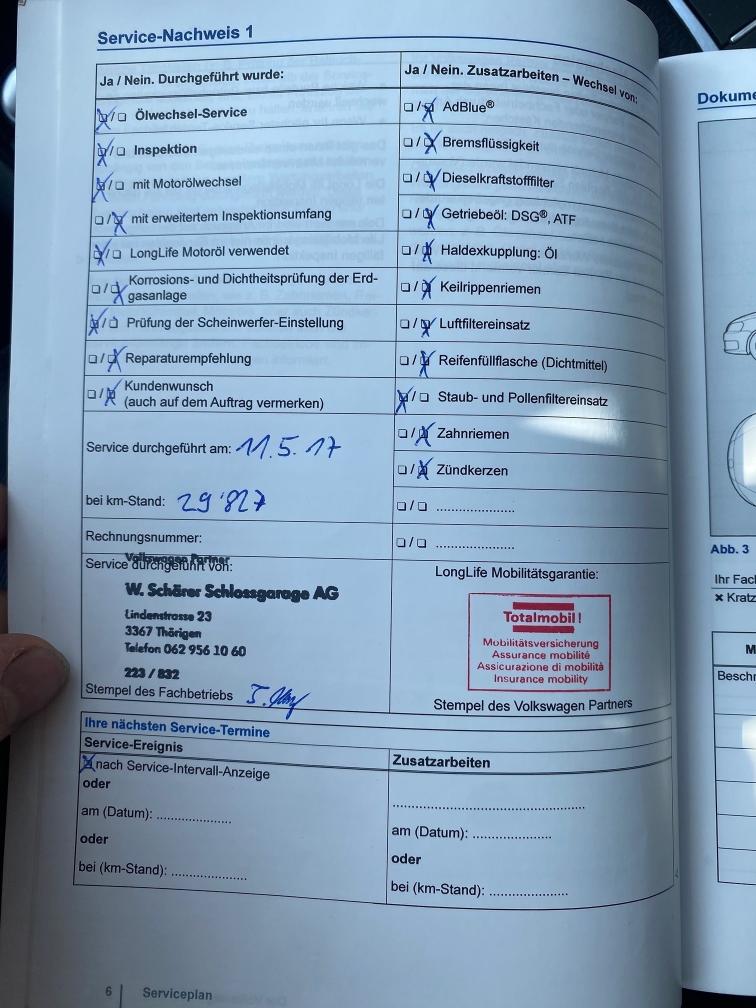 Service-Nachweis 1
Ja / Nein. Durchgeführt wurde:
Ölwechsel-Service
Inspektion
mit Motorölwechsel
mit erweitertem Inspektionsumfang
LongLife Motoröl verwendet
Korrosions- und Dichtheitsprüfung der Erd-
gasanlage
Prüfung der Scheinwerfer-Einstellung
Reparaturempfehlung
Kundenwunsch
(auch auf dem Auftrag vermerken)
Service durchgeführt am: 11.5.17
bei km-Stand: 29'827
Rechnungsnummer:
Service durchgeführt von:
Volkswagen Partner
W. Schärer Schlossgarage AG
Lindenstrasse 23
3367 Thörigen
Telefon 062 956 10 60
223 / 832
Stempel des Fachbetriebs
Ja / Nein. Zusatzarbeiten – Wechsel von:
AdBlue®
Bremsflüssigkeit
Dieselkraftstofffilter
Getriebeöl: DSG®, ATF
Haldexkupplung: Öl
Keilrippenriemen
Luftfiltereinsatz
Reifenfüllflasche (Dichtmittel)
Staub- und Pollenfiltereinsatz
Zahnriemen
Zündkerzen
LongLife Mobilitätsgarantie:
Totalmobil!
Mobilitätsversicherung
Assurance mobilité
Assicurazione di mobilità
Insurance mobility
Stempel des Volkswagen Partners
Ihre nächsten Service-Termine
Service-Ereignis
nach Service-Intervall-Anzeige
oder
am (Datum): ......................
oder
bei (km-Stand): ......................
Zusatzarbeiten
am (Datum): ......................
oder
bei (km-Stand): ......................
6 | Serviceplan
Dokume
Abb. 3
Ihr Fac
× Kratz
M
Besch